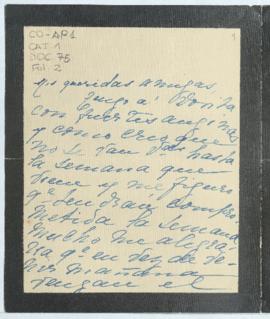 CO-AP1
CAT. 1
DOC. 75
Fol. 2
1
Mis queridas amigas,
Tengo a
con fuertes anginas
y como creo que
no se van Vds hasta
la semana que
viene y me figuro
qe tendran compro
metida la semana,
mucho me alegra-
ria qe en vez de ve-
nir mañana
vengan el